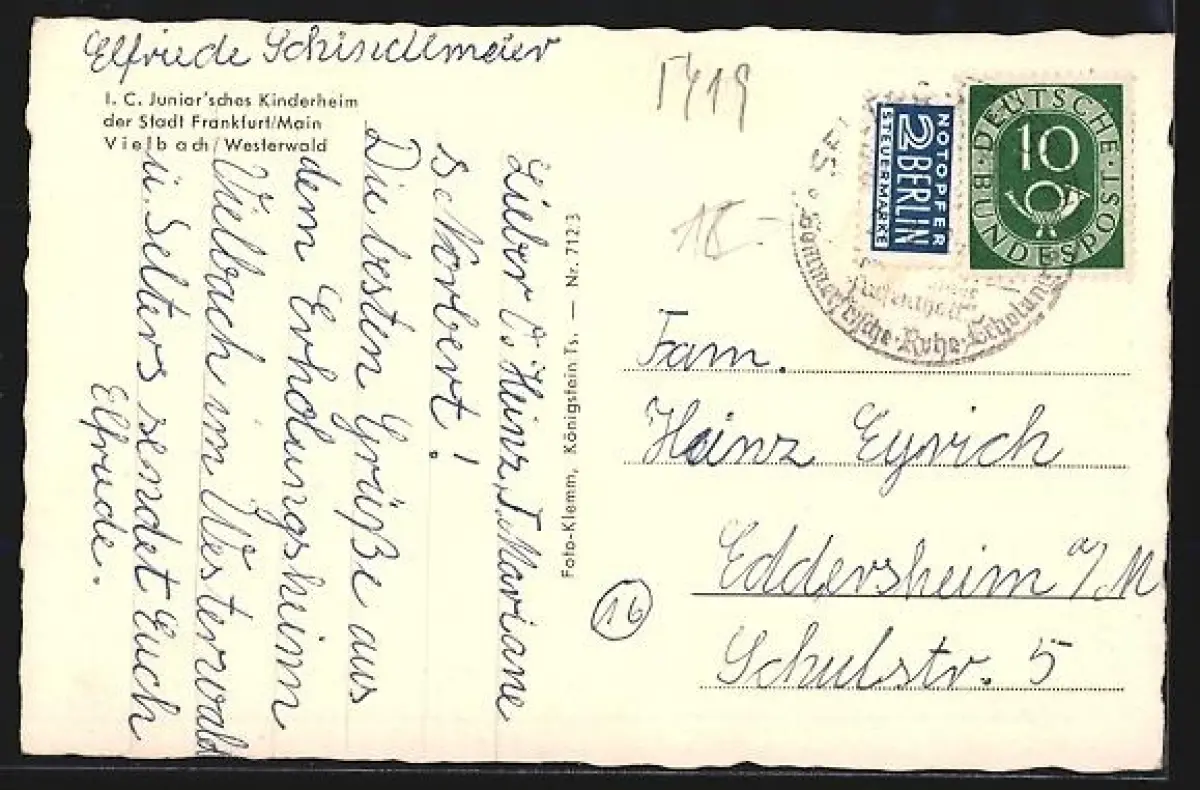 Elfriede Schindlmeier
I. C. Junior'sches Kinderheim
der Stadt Frankfurt/Main
Vielbach/Westerwald
Lieber O. Heinz, T. Mariane
u. Norbert!
Die besten Grüße aus
dem Erholungsheim
Vielbach im Westerwald
u. Selters sendet Euch
Elfriede.
Foto-Klemm, Königstein Ts. — Nr. 7123
5419
NOTOPFER
2 BERLIN
STEUERMARKE
DEUTSCHE
BUNDESPOST
10
Sommerfrische · Ruhe · Erholung
Fam.
Heinz Eyrich
16
Eddersheim a/M
Schulstr. 5